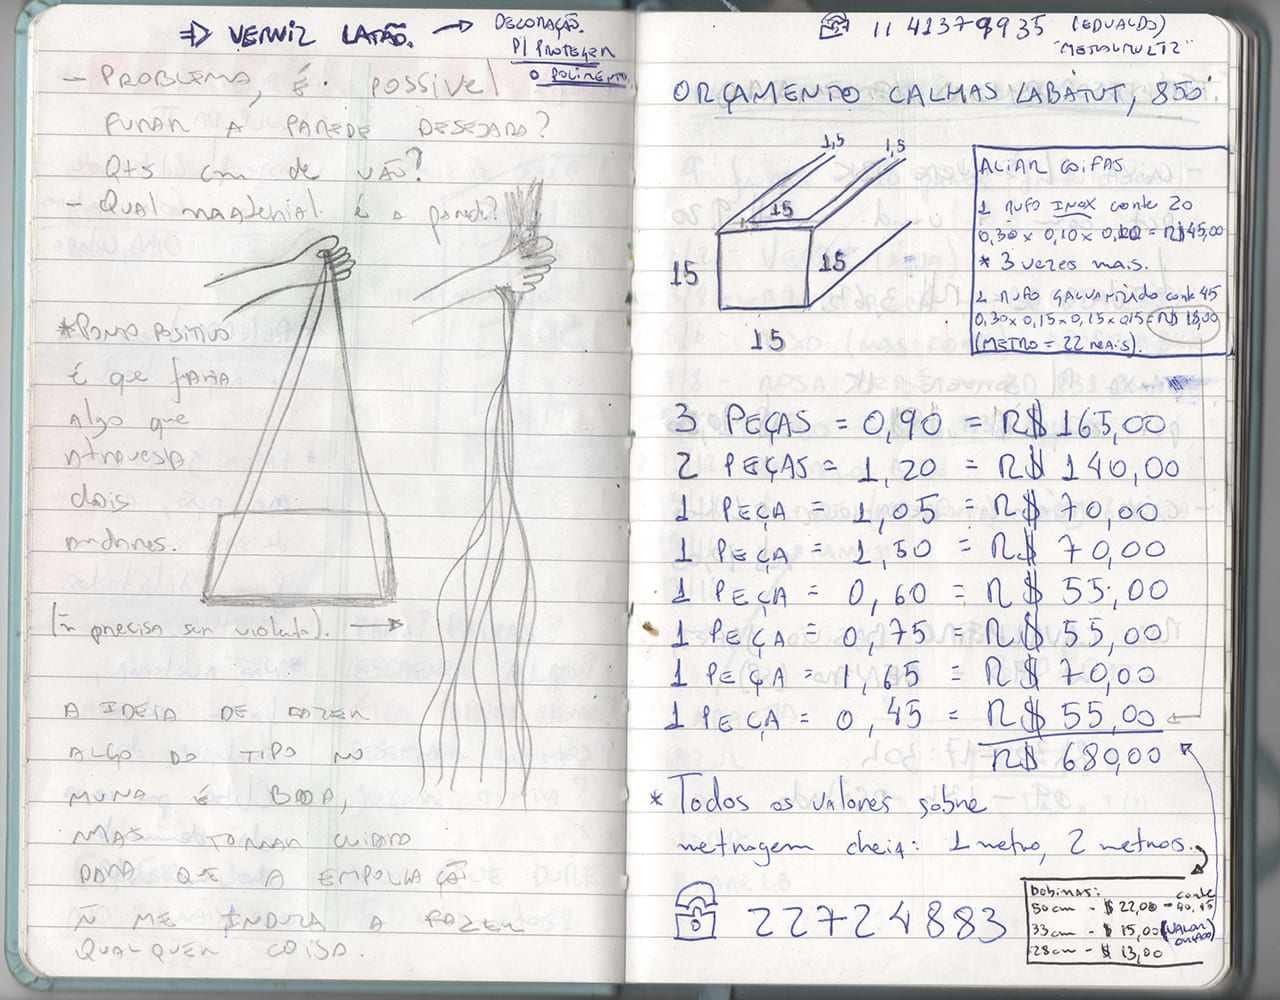 ⇒ VERNIZ LATÃO. → DECORAÇÃO.
P/ PROTEGER
O POLIMENTO.
- PROBLEMA, É POSSIVEL
FURAR A PAREDE DESEJADA?
Qts cm de VÃO?
- QUAL maaterial é a parede?
* PONTO POSITIVO
é que faria
algo que
atravessa
dois
andares.
(ñ precisa ser violento). →
A IDEIA DE FAZER
ALGO DO TIPO NO
MUNA É BOA,
MAS TOMAR CUIDADO
PARA QUE A EMPOLGAÇÃO
Ñ ME INDUZA A FAZER
QUALQUER COISA.
11 41379935 (EDUALDO)
"METALMULTI"
ORÇAMENTO CALHAS LABATUT, 850
1,5 1,5
15
1,5
15 15
15
ALIAR COIFAS
1 RUFO INOX corte 20
0,30 x 0,10 x 0,10 = R$45,00
* 3 vezes mais.
1 RUFO GALVANIZADO corte 45
0,30 x 0,15 x 0,15 x 0,15 = R$ 18,00
(METRO = 22 reais).
3 PEÇAS = 0,90 = R$ 165,00
2 PEÇAS = 1,20 = R$ 140,00
1 PEÇA = 1,05 = R$ 70,00
1 PEÇA = 1,50 = R$ 70,00
1 PEÇA = 0,60 = R$ 55,00
1 PEÇA = 0,75 = R$ 55,00
1 PEÇA = 1,65 = R$ 70,00
1 PEÇA = 0,45 = R$ 55,00
R$ 680,00
* Todos os valores sobre
metragem cheia: 1 metro, 2 metros.
22724883
Bobinas: corte
50cm - $ 22,00 - 40, 45
33cm - $ 15,00 (VALOR
ORÇADO)
28cm - $ 13,00